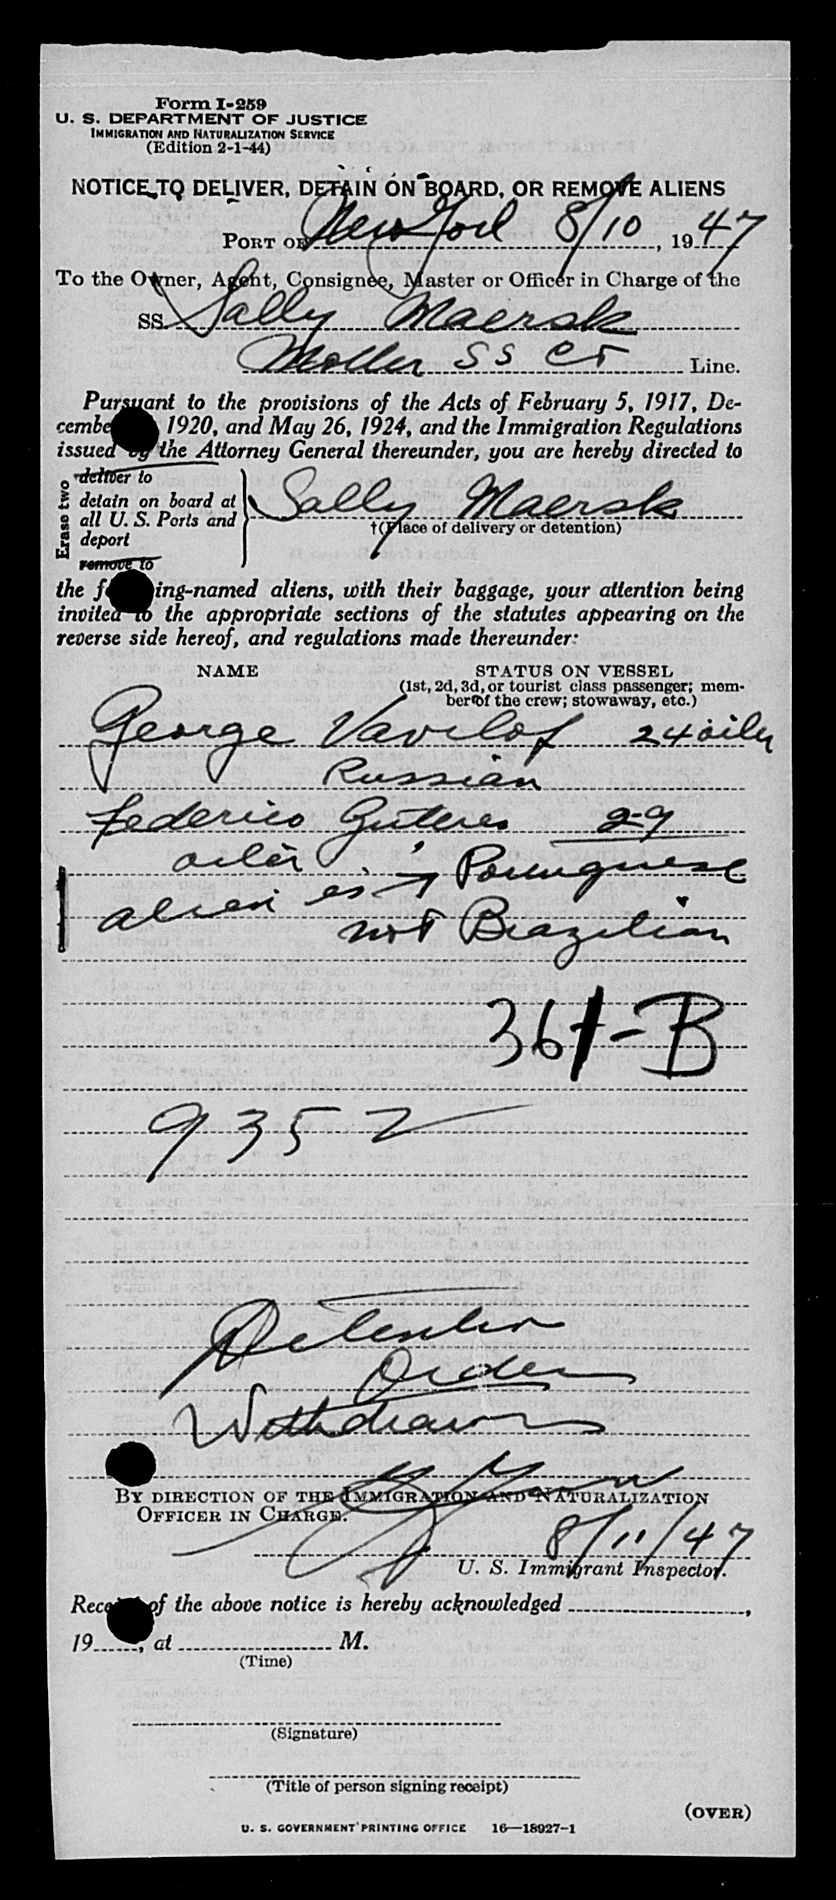 Form I-259
U. S. DEPARTMENT OF JUSTICE
IMMIGRATION AND NATURALIZATION SERVICE
(Edition 2-1-44)
NOTICE TO DELIVER, DETAIN ON BOARD, OR REMOVE ALIENS
PORT OF New York 8/10, 1947
To the Owner, Agent, Consignee, Master or Officer in Charge of the
SS Sally Maersk
Moller SS Co Line.
Pursuant to the provisions of the Acts of February 5, 1917, De-
cembe 1920, and May 26, 1924, and the Immigration Regulations
issued by the Attorney General thereunder, you are hereby directed to
Erase two
deliver to
detain on board at
all U. S. Ports and
deport
remove to
Sally Maersk
†(Place of delivery or detention)
the f ing-named aliens, with their baggage, your attention being
invited to the appropriate sections of the statutes appearing on the
reverse side hereof, and regulations made thereunder:
NAME STATUS ON VESSEL
(1st, 2d, 3d, or tourist class passenger; mem-
ber of the crew; stowaway, etc.)
George Vavilof 24 oiler
Russian
Federico Guteres 29
oiler
alien is → Portuguese
not Brazilian
361-B
9352
Detention
Order
Withdrawn
BY DIRECTION OF THE IMMIGRATION AND NATURALIZATION
OFFICER IN CHARGE.
8/11/47
U. S. Immigrant Inspector.
Rece of the above notice is hereby acknowledged ,
19 , at M.
(Time)
(Signature)
(Title of person signing receipt)
(OVER)
U. S. GOVERNMENT PRINTING OFFICE 16—18927-1